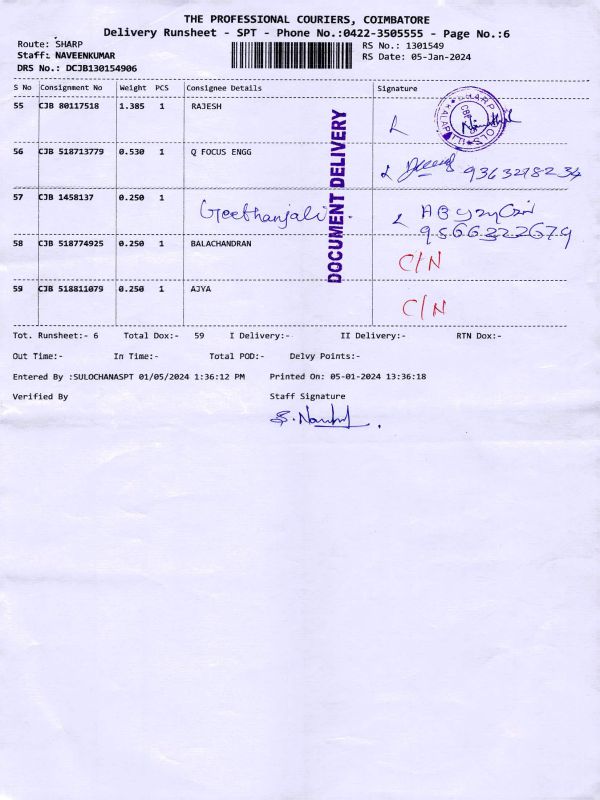 THE PROFESSIONAL COURIERS, COIMBATORE
Delivery Runsheet - SPT - Phone No.:0422-3505555 - Page No.:6
Route: SHARP
RS No.: 1301549
Staff: NAVEENKUMAR
RS Date: 05-Jan-2024
DRS No.: DCJB130154906
S No Consignment No Weight PCS Consignee Details Signature
55 CJB 80117518 1.385 1 RAJESH
SHARP
KALAPATTI
56 CJB 518713779 0.530 1 Q FOCUS ENGG 9363278234
57 CJB 1458137 0.250 1 Geethanjali
9566322679
DOCUMENT DELIVERY
58 CJB 518774925 0.250 1 BALACHANDRAN C/N
59 CJB 518811079 0.250 1 AJYA C/N
Tot. Runsheet:- 6 Total Dox:- 59 I Delivery:- II Delivery:- RTN Dox:-
Out Time:- In Time:- Total POD:- Delvy Points:-
Entered By :SULOCHANASPT 01/05/2024 1:36:12 PM Printed On: 05-01-2024 13:36:18
Verified By Staff Signature